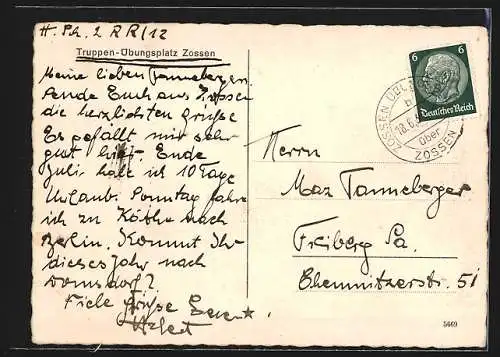 H. Pk. 2 RR/12
Truppen-Übungsplatz Zossen
Meine lieben Tanneberger.
Sende Euch aus Zossen
die herzlichsten Grüße
Es gefällt mir sehr
gut hier. Ende
Juli habe ich 10 Tage
Urlaub. Sonntag fahre
ich zu Käthe nach
Berlin. Kommt Ihr
dieses Jahr nach
Viele Grüße Euer
6 6
Deutsches Reich
ZOSSEN ÜBL
18.6.
über
ZOSSEN
Herrn
Max Tanneberger
Freiberg Sa.
Chemnitzerstr. 51
5669